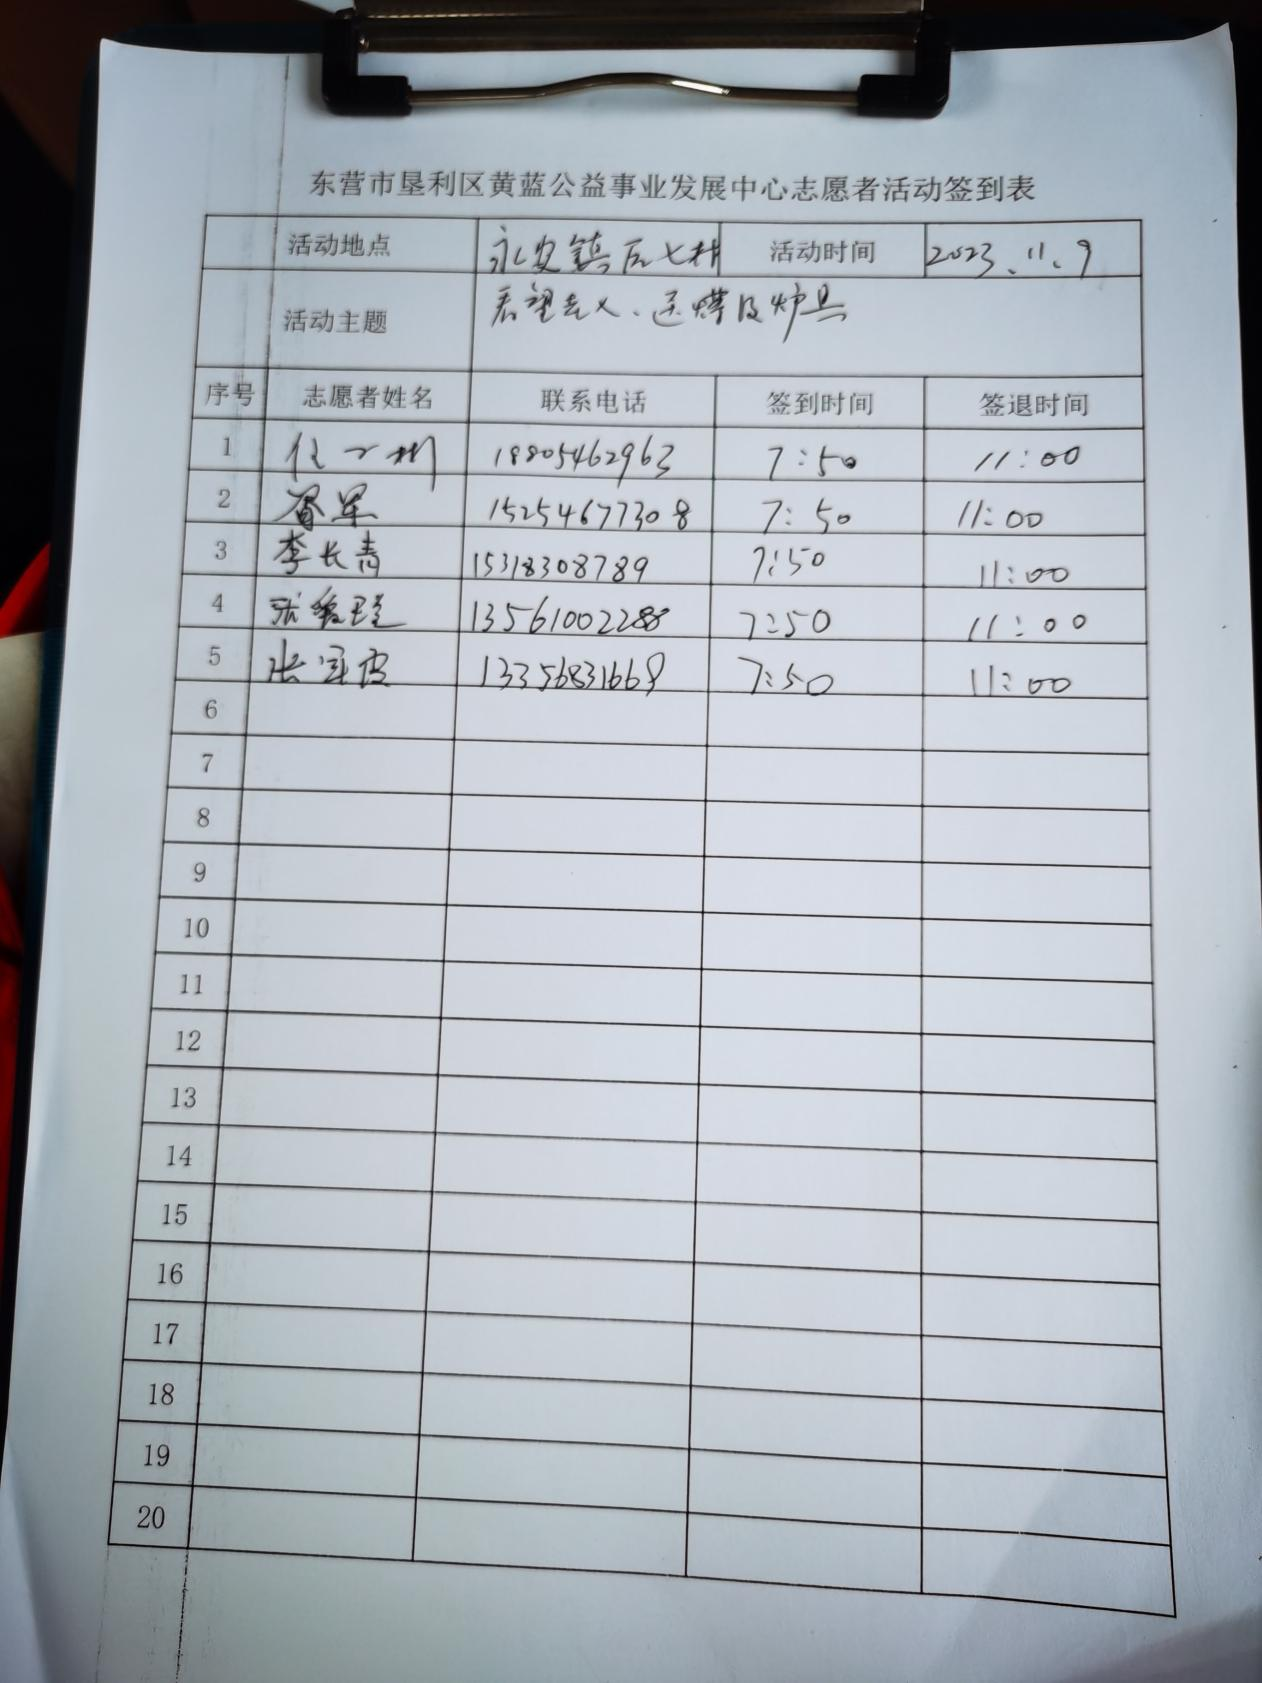 东营市垦利区黄蓝公益事业发展中心志愿者活动签到表
活动地点 永安镇后七村 活动时间 2023.11.9
活动主题 看望老人、送煤及炉具
序号 志愿者姓名 联系电话 签到时间 签退时间
1 18805462963 7:50 11:00
2 军 15254677308 7:50 11:00
3 李长青 15318308789 7:50 11:00
4 张 13561002288 7:50 11:00
5 张 13356831669 7:50 11:00
6
7
8
9
10
11
12
13
14
15
16
17
18
19
20